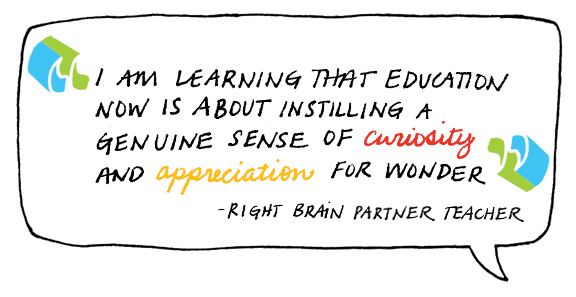 I AM LEARNING THAT EDUCATION
NOW IS ABOUT INSTILLING A
GENUINE SENSE OF curiosity
AND appreciation FOR WONDER
-RIGHT BRAIN PARTNER TEACHER